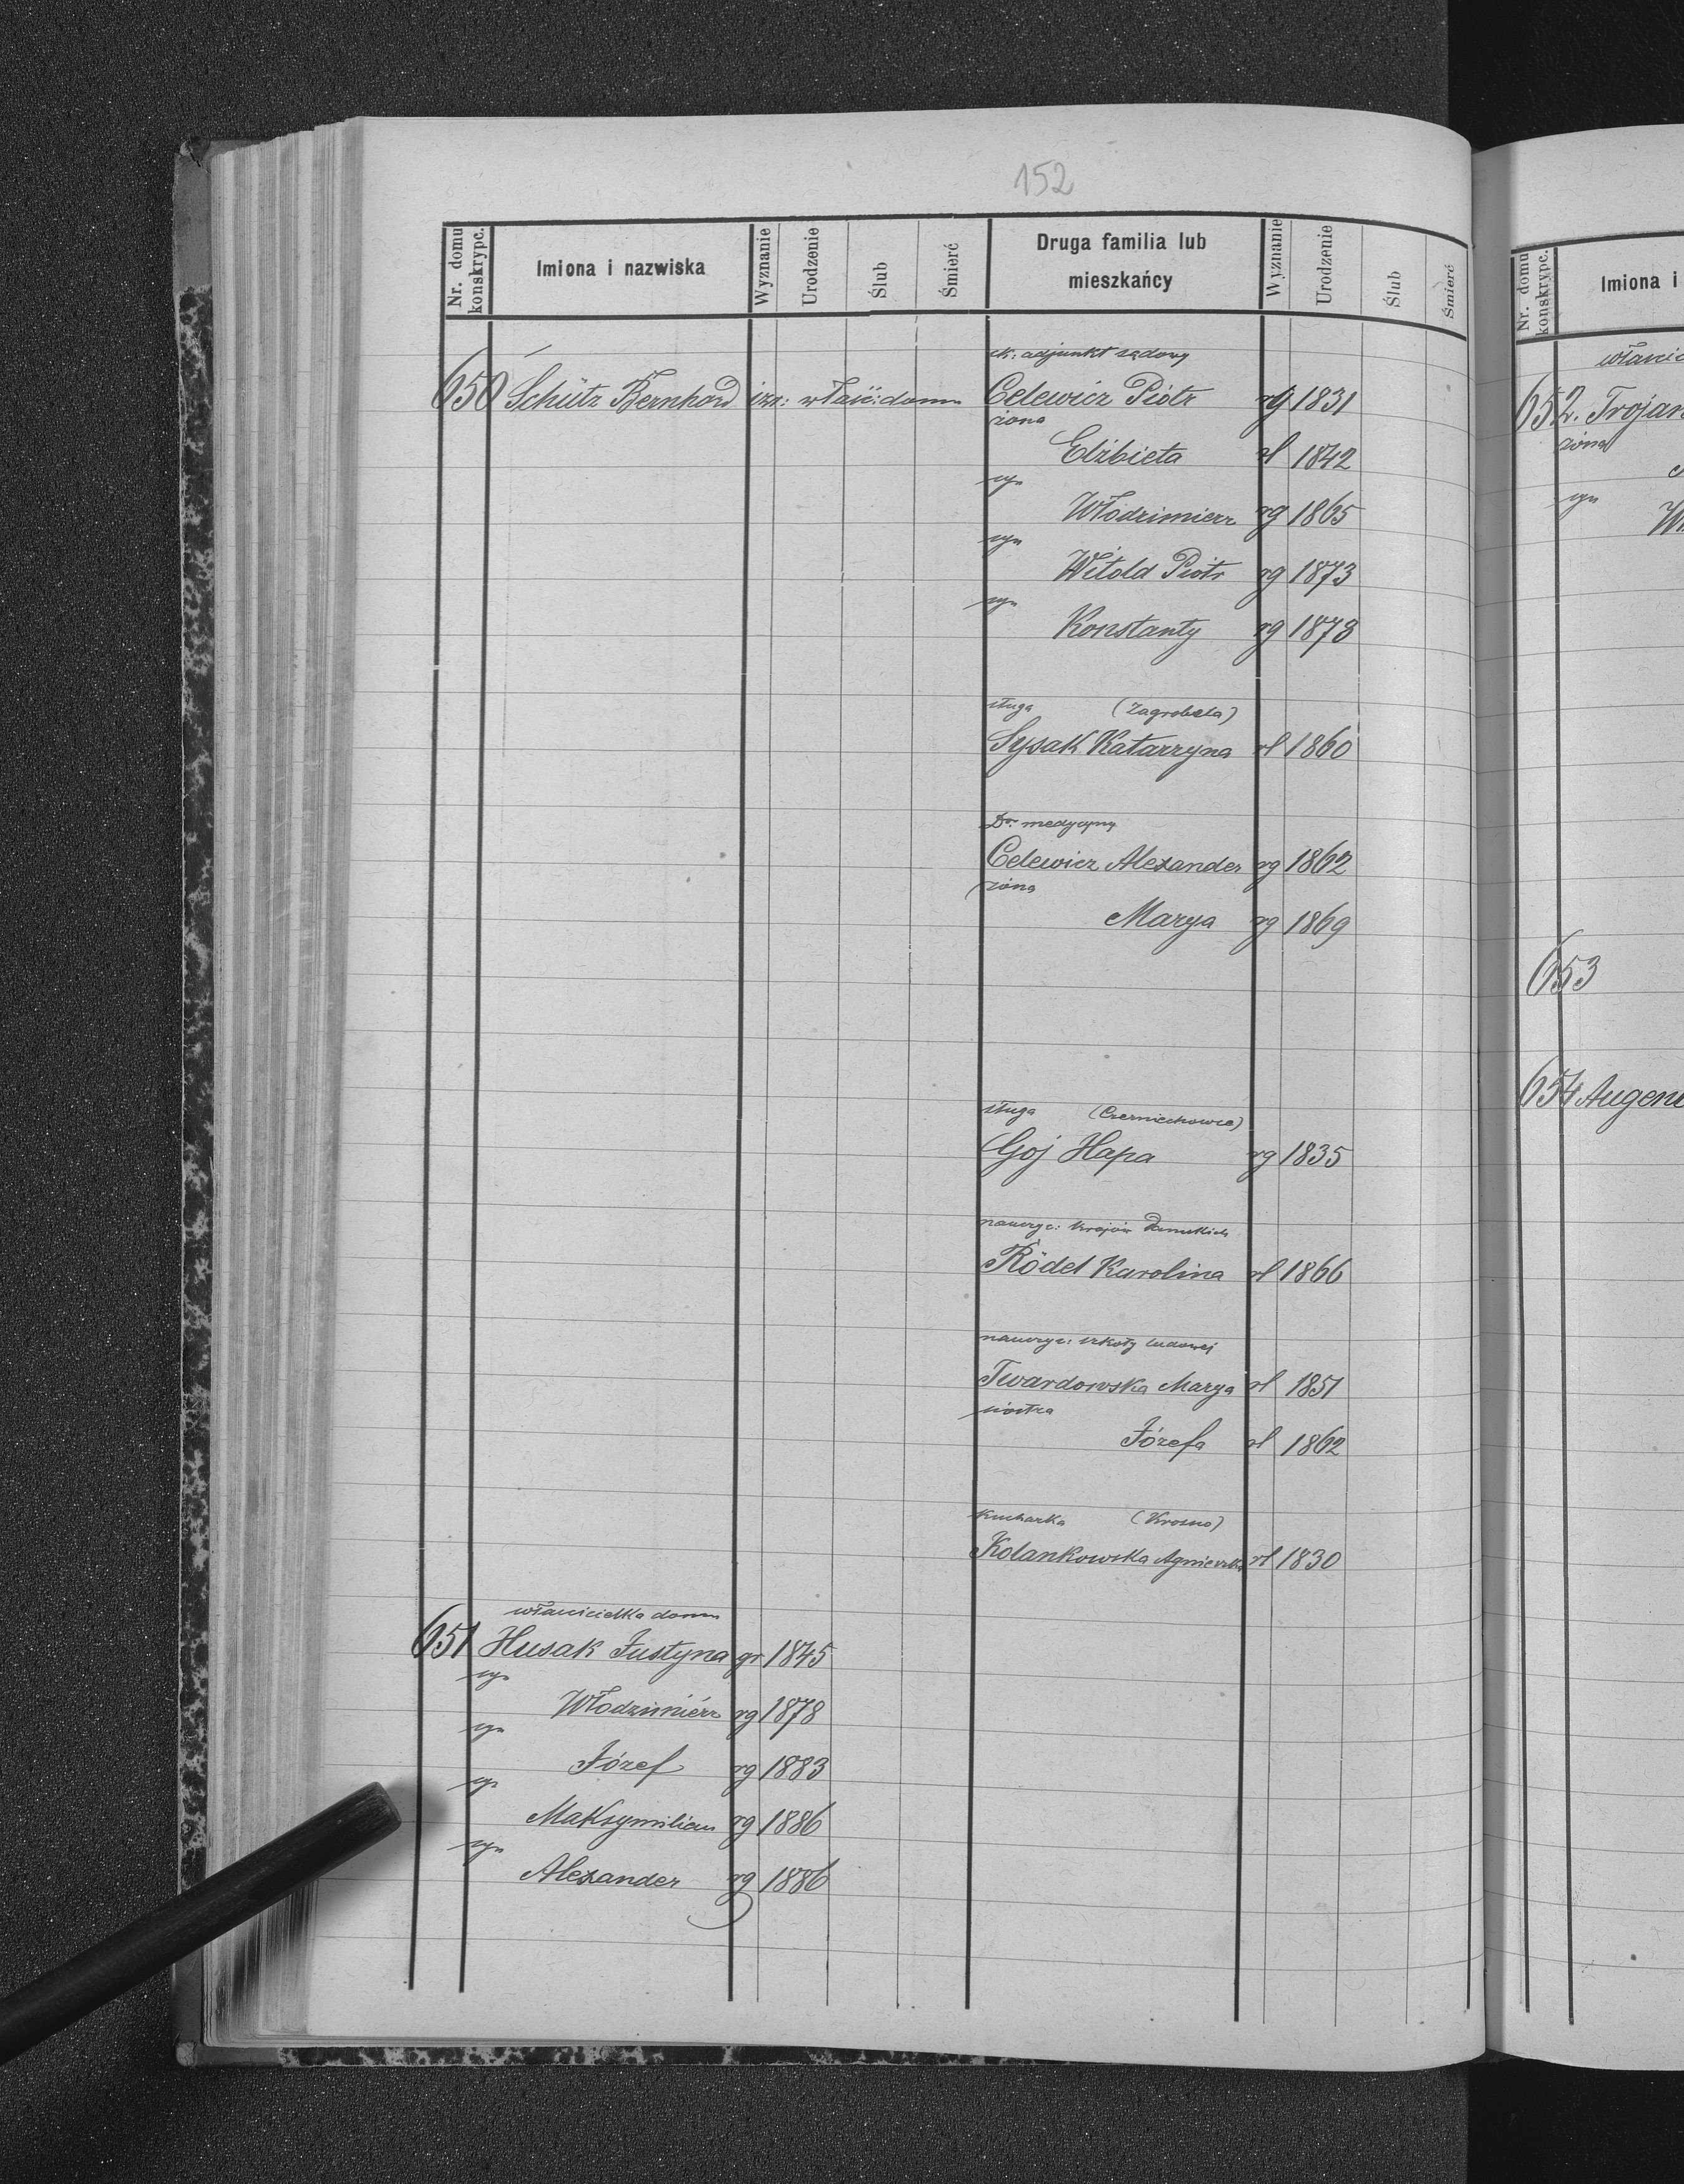 152
Nr. domu konskrypc. Imiona i nazwiska Wyznanie Urodzenie Ślub Śmierć Druga familia lub mieszkańcy Wyznanie Urodzenie Ślub Śmierć
ck: adjunkt sądowy
650 Schütz Bernhard izr: właść: domu Celewicz Piotr rg 1831
żona
Elżbieta rł 1842
syn
Włodzimierz rg 1865
syn
Witold Piotr rg 1873
syn
Konstanty rg 1873
sługa (Zagrobela)
Sysak Katarzyna rł 1860
Dr. medycyny
Celewicz Alexander rg 1862
żona
Marya rg 1869
sługa (Czerniechowce)
Goj Hapa rg 1835
nauczyc: krojów Damskich
Rödel Karolina rł 1866
nauczyc: szkoły ludowej
Twardowska Marya rł 1851
siostra
Józefa rł 1862
kucharka (Krosno)
Kolankowska Agnieszka rł 1830
właścicielka domu
651 Husak Justyna gr 1845
syn
Włodzimierz rg 1878
syn
Józef rg 1883
syn
Maksymilian rg 1886
syn
Alexander rg 1886
Nr. domu konskrypc. Imiona i
652. Trojan
żona
syn
653
654 Augen